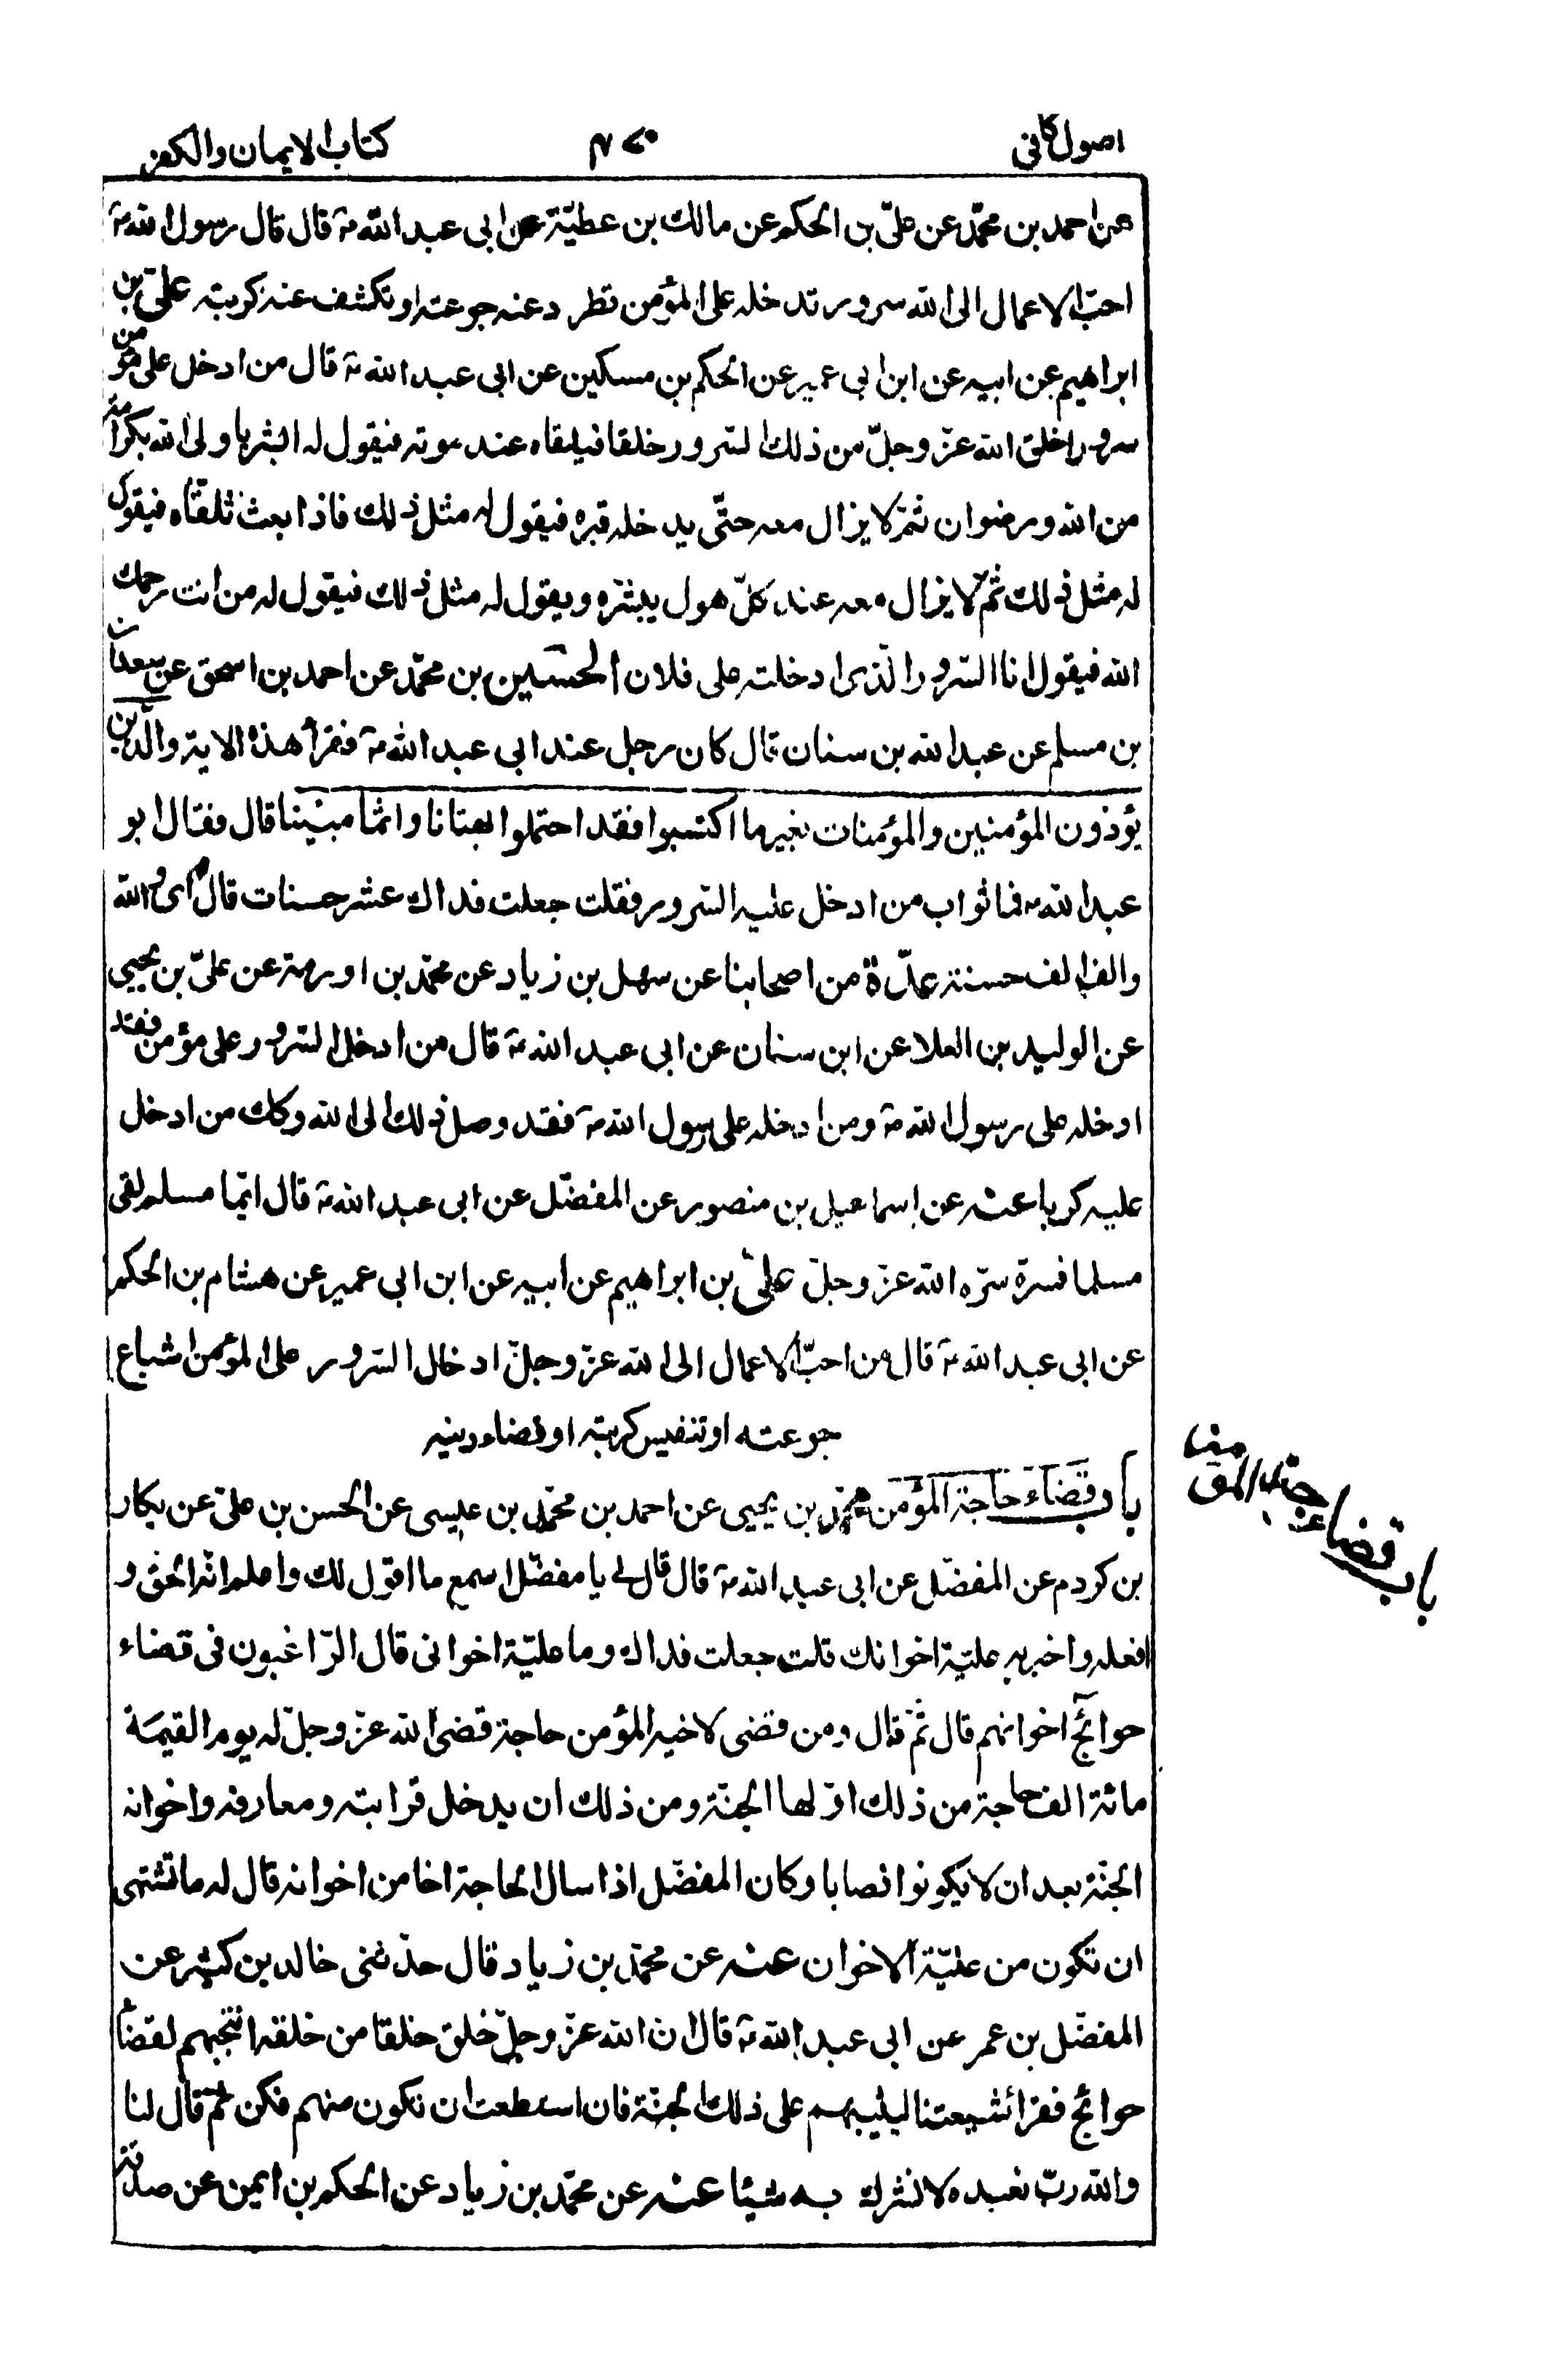 اصول كافى
كتاب الايمان والكفر
عن احمد بن محمّد عن علىّ بن الحكم عن مالك بن عطيّة عن ابى عبد اللّه ؑ قال قال رسول اللّه ؐ
احبّ الاعمال الى اللّه سرور تدخله على المؤمن تطرد عنه جوعته او تكشف عنه كربته علىّ بن
ابراهيم عن ابيه عن ابن ابى عمير عن الحكم بن مسكين عن ابى عبد اللّه ؑ قال من ادخل على مؤمن
سرورا خلق اللّه عزّ وجلّ من ذلك السّرور خلقا فيلقاه عند موته فيقول له ابشر يا ولى اللّه بكرامة
من اللّه ورضوان ثمّ لا يزال معه حتّى يدخله قبره فيقول له مثل ذلك فاذا بعث تلقاه فيقول
له مثل ذلك ثمّ لا يزال معه عند كلّ هول يبشّره ويقول له مثل ذلك فيقول له من انت رحمك
اللّه فيقول انا السّرور الّذى ادخلته على فلان الحسين بن محمّد عن احمد بن اسحق عن سعدان
بن مسلم عن عبد اللّه بن سنان قال كان رجل عند ابى عبد اللّه ؑ فقرأ هذه الاية والّذين
يؤذون المؤمنين والمؤمنات بغير ما اكتسبوا فقد احتملوا بهتانا واثما مبينا قال فقال ابو
عبد اللّه ؑ فما ثواب من ادخل عليه السّرور فقلت جعلت فداك عشر حسنات قال اى واللّه
والف الف حسنة عدّة من اصحابنا عن سهل بن زياد عن محمّد بن اورمة عن علىّ بن يحيى
عن الوليد بن العلا عن ابن سنان عن ابى عبد اللّه ؑ قال من ادخل السّرور على مؤمن فقد
ادخله على رسول اللّه ؐ ومن ادخله على رسول اللّه ؐ فقد وصل ذلك الى اللّه وكك من ادخل
عليه كربا عنه عن اسماعيل بن منصور عن المفضّل عن ابى عبد اللّه ؑ قال ايّما مسلم لقى
مسلما فسرّه سرّه اللّه عزّ وجلّ علىّ بن ابراهيم عن ابيه عن ابن ابى عمير عن هشام بن الحكم
عن ابى عبد اللّه ؑ قال من احبّ الاعمال الى اللّه عزّ وجلّ ادخال السّرور على المؤمن اشباع
جوعته او تنفيس كربته او قضاء دينه
باب قضاء حاجة المؤمن محمّد بن يحيى عن احمد بن محمّد بن عيسى عن الحسن بن علىّ عن بكار
بن كردم عن المفضّل عن ابى عبد اللّه ؑ قال قال لى يا مفضّل اسمع ما اقول لك واعلم انّه الحقّ و
افعله واخبر به علّية اخوانك قلت جعلت فداك وما علّية اخوانى قال الرّاغبون فى قضاء
حوائج اخوانهم قال ثمّ قال ومن قضى لاخيه المؤمن حاجة قضى اللّه عزّ وجلّ له يوم القيمة
مائة الف حاجة من ذلك اوّلها الجنّة ومن ذلك ان يدخل قرابته ومعارفه واخوانه
الجنّة بعد ان لا يكونوا نصابا وكان المفضّل اذا سال الحاجة اخا من اخوانه قال له ما تشتهى
ان تكون من علّية الاخوان عنه عن محمّد بن زياد قال حدّثنى خالد بن
المفضّل بن عمر عن ابى عبد اللّه ؑ قال ان اللّه عزّ وجلّ خلق خلقا من خلقه انتجبهم لقضاء
حوائج فقراء شيعتنا ليثيبهم على ذلك الجنّة فان استطعت ان تكون منهم فكن ثمّ قال لنا
واللّه ربّ نعبده لا نشرك به شيئا عنه عن محمّد بن زياد عن الحكم بن ايمن عن صدقة
باب قضاء حاجة المؤمن